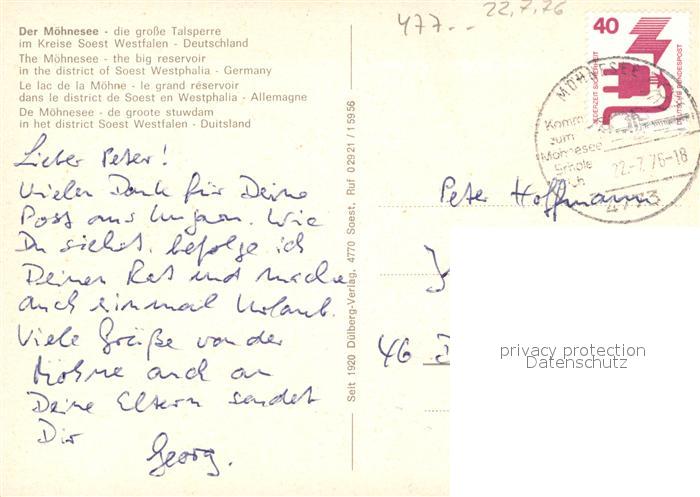 Der Möhnesee - die große Talsperre
im Kreise Soest Westfalen - Deutschland
The Möhnesee - the big reservoir
in the district of Soest Westphalia - Germany
Le lac de la Möhne - le grand réservoir
dans le district de Soest en Westphalia - Allemagne
De Möhnesee - de groote stuwdam
in het district Soest Westfalen - Duitsland
Lieber Peter!
Vielen Dank für Deine
Post aus Ungarn. Wie
Du siehst, befolge ich
Deinen Rat und mache
auch einmal Urlaub.
Viele Grüße von der
Möhne auch an
Deine Eltern sendet
Dir
Georg.
Seit 1920 Dülberg-Verlag, 4770 Soest, Ruf 0 29 21 / 1 59 56
477--
22.7.76
40
JEDERZEIT SICHERHEIT
DEUTSCHE BUNDESPOST
MÖHNESEE
Komm
zum
Möhnesee
22-7.76-18
4773
Peter Hoffmann
46 D
privacy protection
Datenschutz